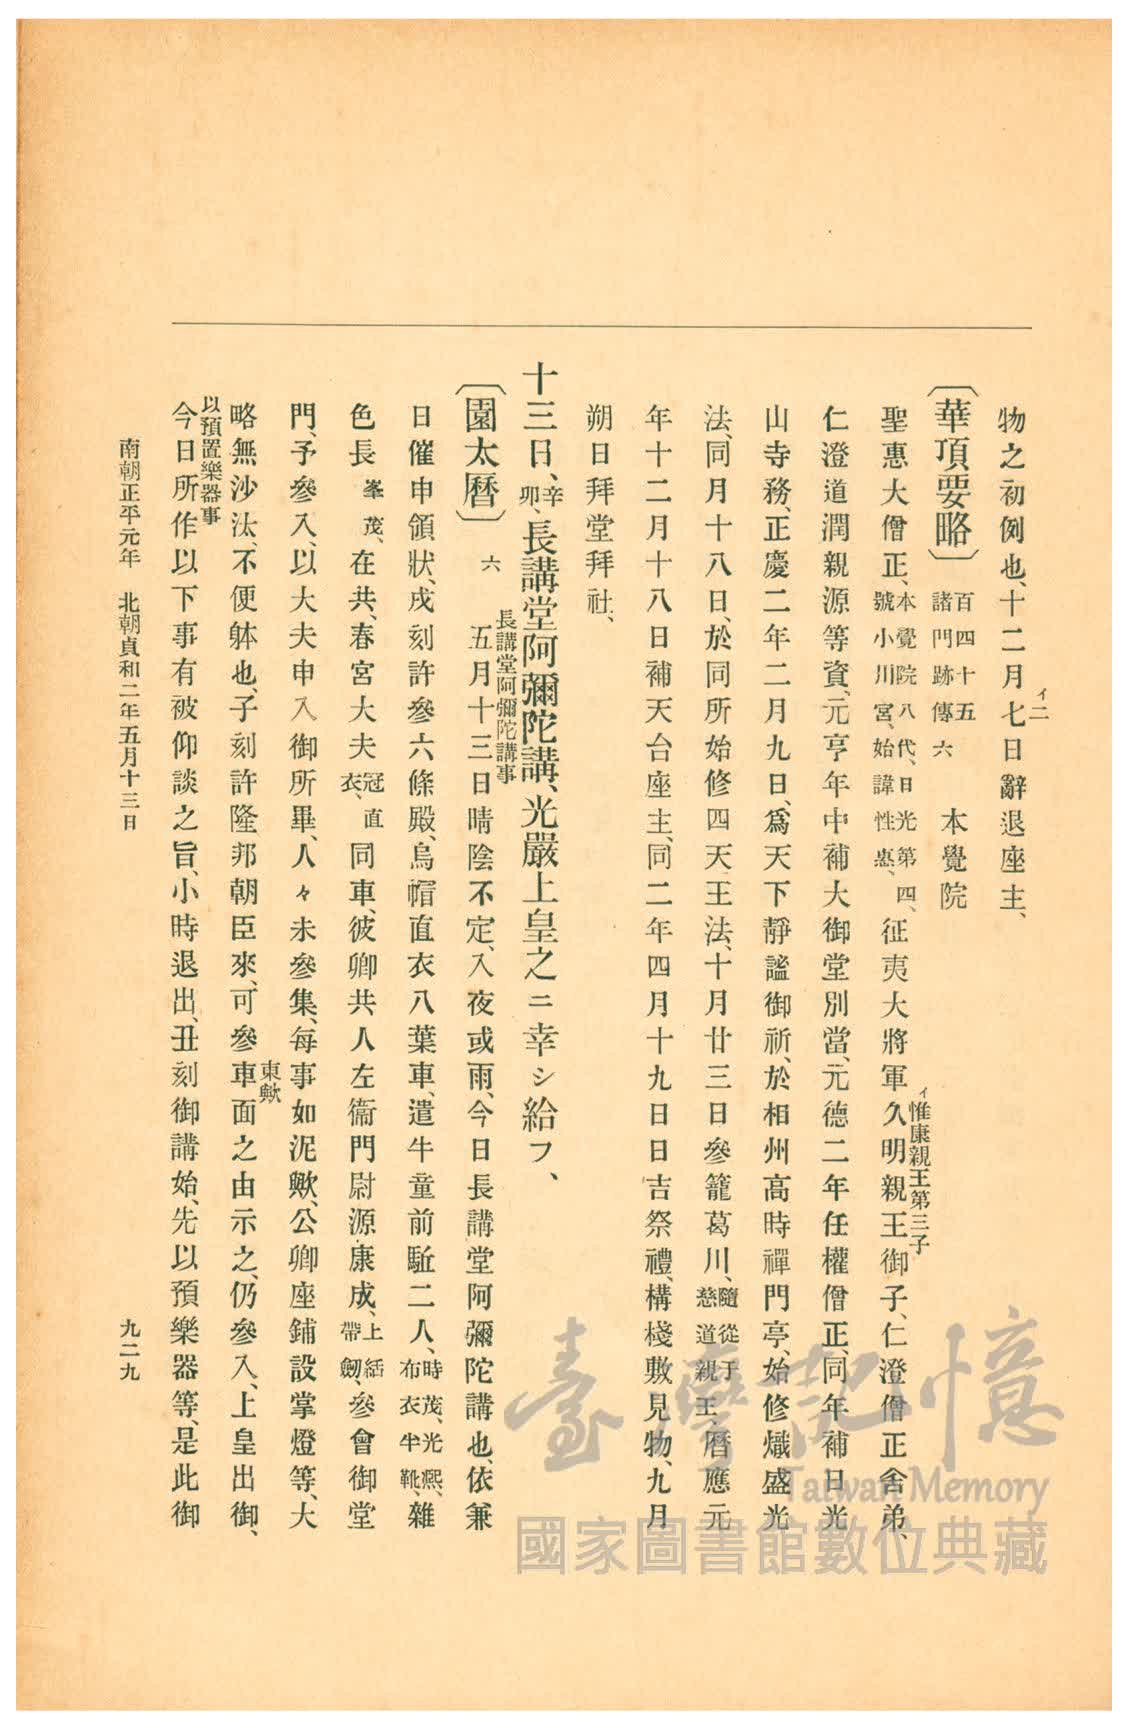 物之初例也、十二月七日辭退座主、
イ二
〔華頂要略〕 百四十五 諸門跡傳六 本覺院
聖惠大僧正、本覺院八代、日光第四、號小川宮、始諱性惠、征夷大將軍久明親王御子、仁澄僧正舍弟、
イ惟康親王第三子
仁澄道潤親源等資、元亨年中補大御堂別當、元德二年任權僧正、同年補日光
山寺務、正慶二年二月九日、爲天下靜謐御祈、於相州高時禪門亭、始修熾盛光
法、同月十八日、於同所始修四天王法、十月廿三日參籠葛川、隨從于慈道親王、曆應元
年十二月十八日補天台座主、同二年四月十九日日吉祭禮、構棧敷見物、九月
朔日拜堂拜社、
十三日、辛卯、長講堂阿彌陀講、光嚴上皇之ニ幸シ給フ、
長講堂阿彌陀講事
〔園太曆〕 六 五月十三日晴陰不定、入夜或雨、今日長講堂阿彌陀講也、依兼
日催申領狀、戌刻許參六條殿、烏帽直衣八葉車、遣牛童前駈二人、時茂、光熙、布衣半靴、雜
色長峯茂、在共、春宮大夫冠直衣、同車、彼卿共人左衞門尉源康成、上結帶劔、參會御堂
門、予參入、以大夫申入御所畢、人々未參集、每事如泥歟、公卿座鋪設掌燈等、大
東歟
略無沙汰、不便躰也、子刻許隆邦朝臣來、可參車面之由示之、仍參入、上皇出御、
以預置樂器事
今日所作以下事有被仰談之旨、小時退出、丑刻御講始、先以預樂器等、是此御
南朝正平元年 北朝貞和二年五月十三日
九二九
臺灣記憶
Taiwan Memory
國家圖書館數位典藏